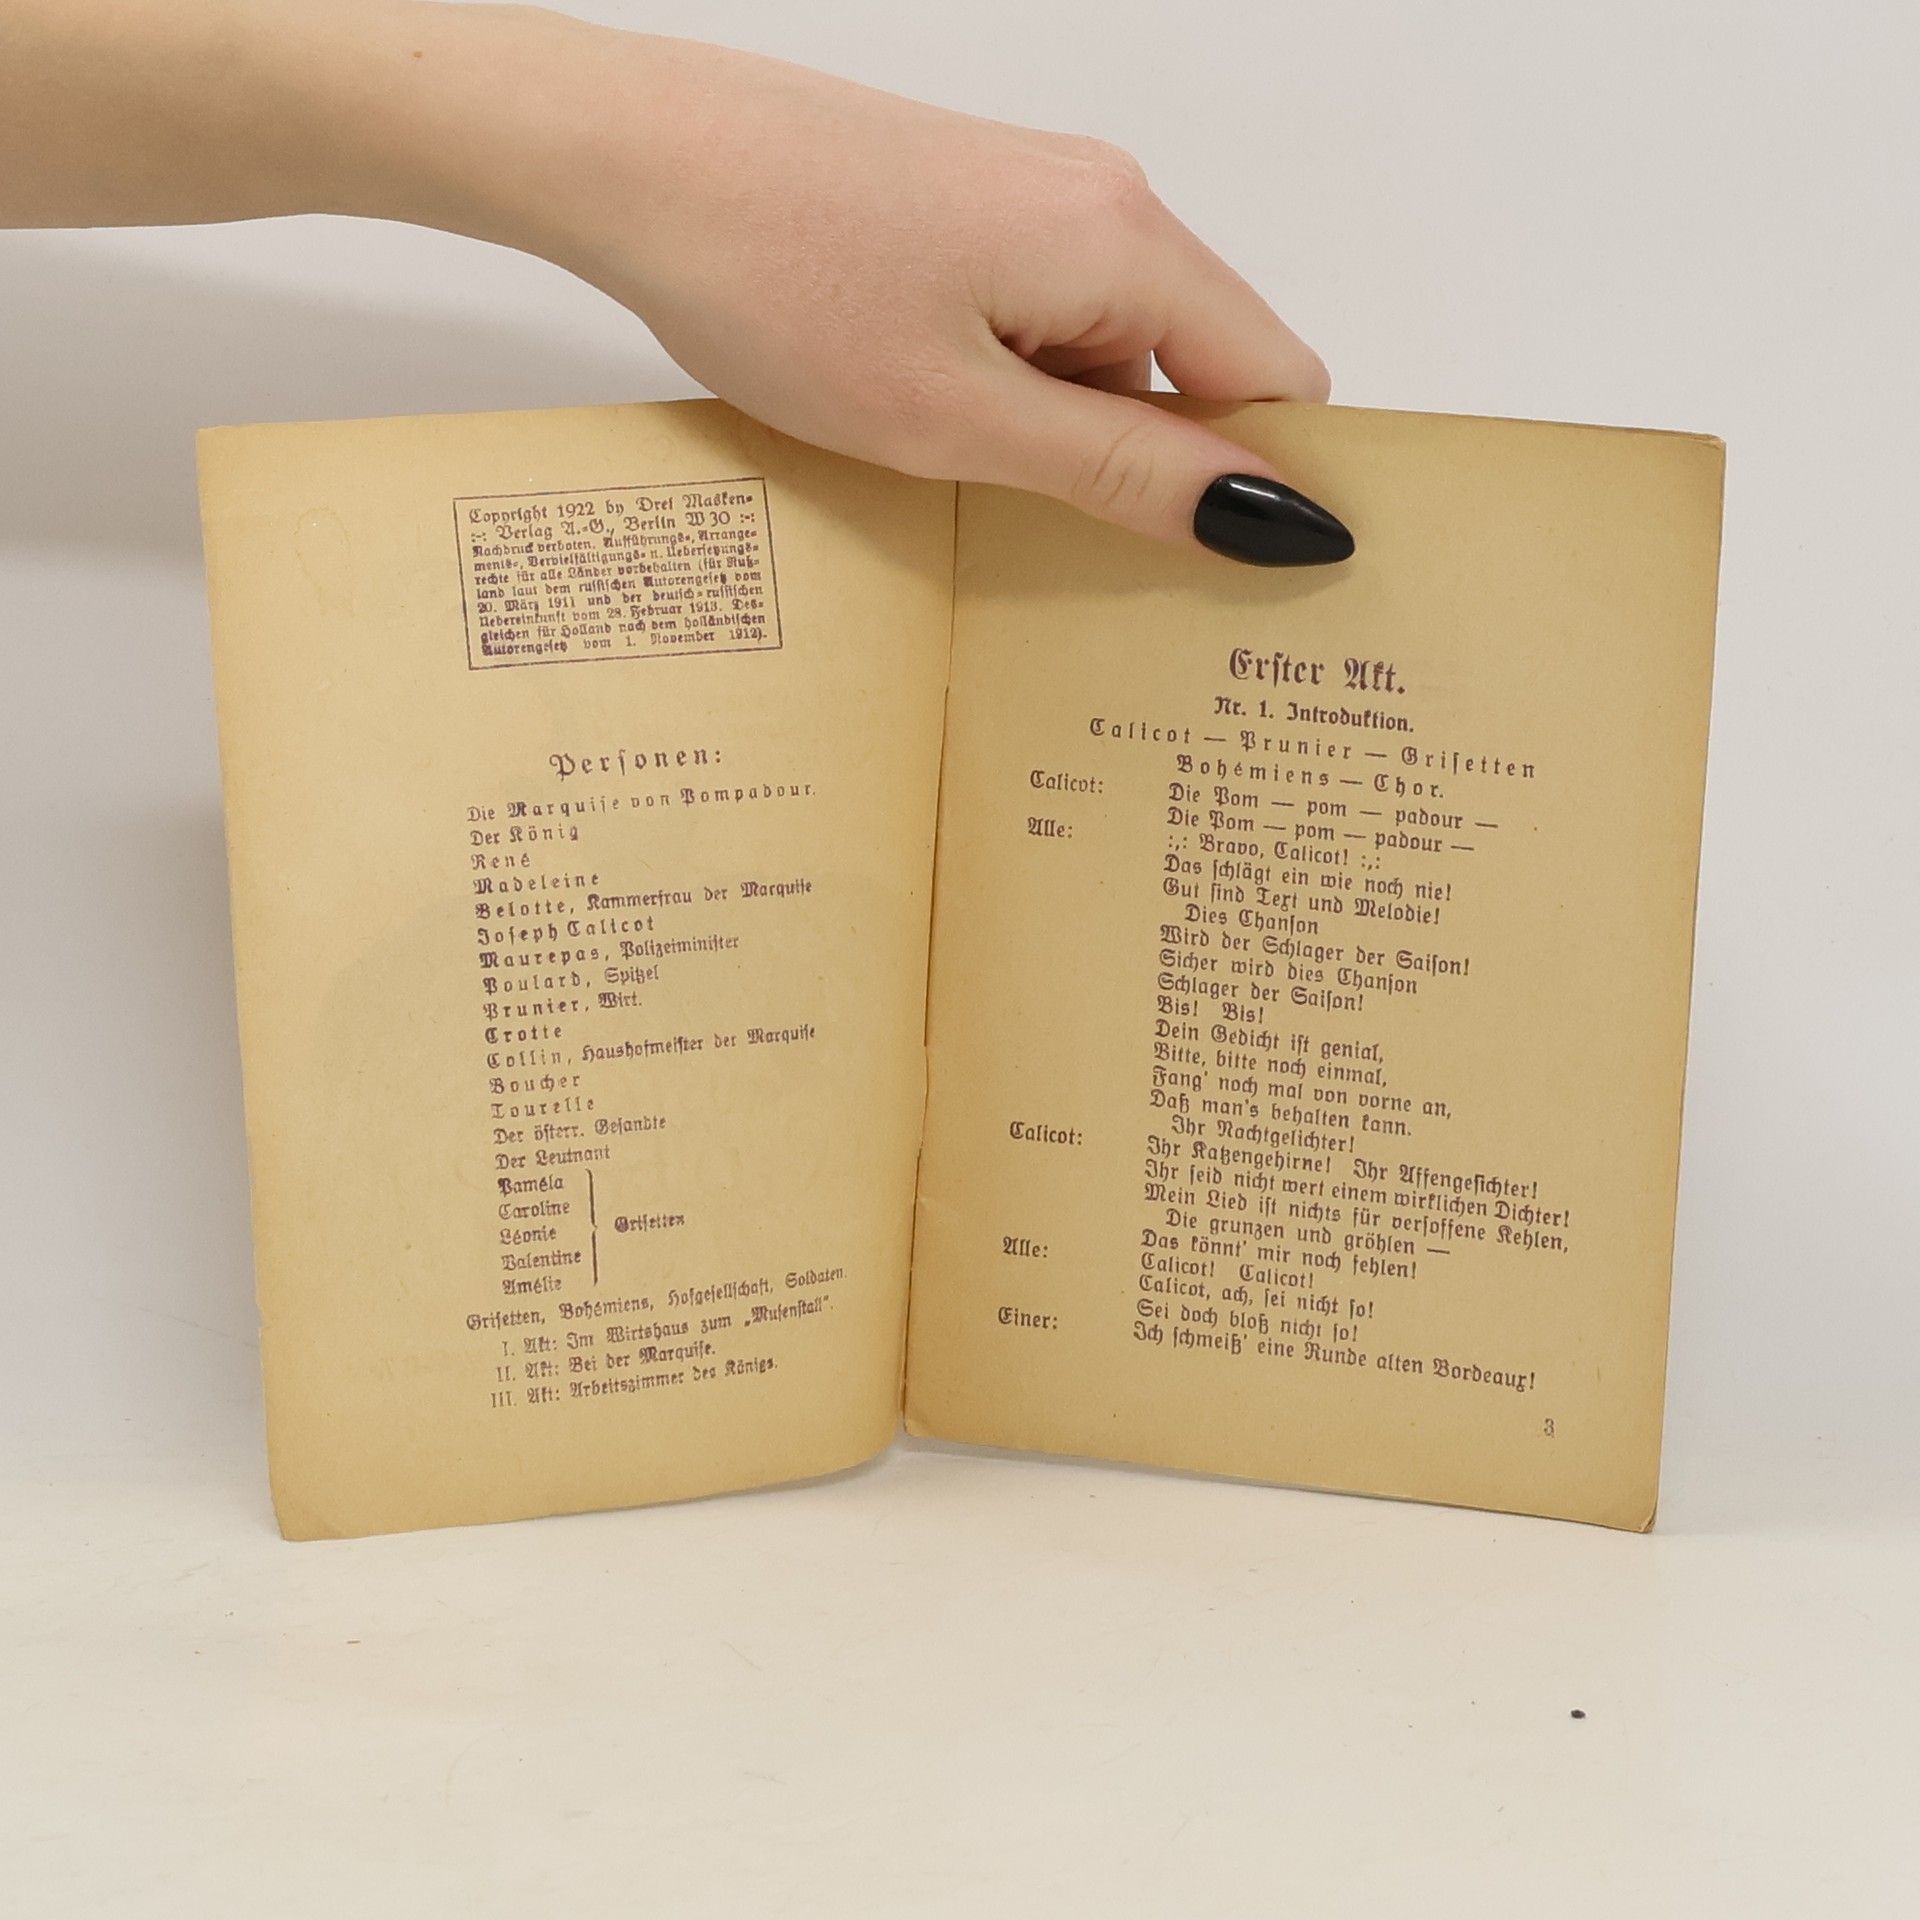 Copyright 1922 by Drei Masken-
:-: Verlag A.-G., Berlin W 30 :-:
Nachdruck verboten. Aufführungs-, Arrange-
ments-, Vervielfältigungs- u. Uebersetzungs-
rechte für alle Länder vorbehalten (für Ruß-
land laut dem russischen Autorengesetz vom
20. März 1911 und der deutsch-russischen
Uebereinkunft vom 28. Februar 1913. Des-
gleichen für Holland nach dem holländischen
Autorengesetz vom 1. November 1912).
Personen:
Die Marquise von Pompadour.
Der König
René
Madeleine
Belotte, Kammerfrau der Marquise
Joseph Calicot
Maurepas, Polizeiminister
Poulard, Spitzel
Prunier, Wirt.
Crotte
Collin, Haushofmeister der Marquise
Boucher
Tourelle
Der österr. Gesandte
Der Leutnant
Paméla
Caroline
Léonie
Grisetten
Valentine
Amélie
Grisetten, Bohémiens, Hofgesellschaft, Soldaten.
I. Akt: Im Wirtshaus zum „Musenstall".
II. Akt: Bei der Marquise.
III. Akt: Arbeitszimmer des Königs.
Erster Akt.
Nr. 1. Introduktion.
Calicot — Prunier — Grisetten
Bohémiens — Chor.
Calicot: Die Pom — pom — padour —
Die Pom — pom — padour —
Alle: :,: Bravo, Calicot! :,:
Das schlägt ein wie noch nie!
Gut sind Text und Melodie!
Dies Chanson
Wird der Schlager der Saison!
Sicher wird dies Chanson
Schlager der Saison!
Bis! Bis!
Dein Gedicht ist genial,
Bitte, bitte noch einmal,
Fang' noch mal von vorne an,
Daß man's behalten kann.
Calicot: Ihr Nachtgelichter!
Ihr Katzengehirne! Ihr Affengesichter!
Ihr seid nicht wert einem wirklichen Dichter!
Mein Lied ist nichts für versoffene Kehlen,
Die grunzen und gröhlen —
Das könnt' mir noch fehlen!
Alle: Calicot! Calicot!
Calicot, ach, sei nicht so!
Sei doch bloß nicht so!
Einer: Ich schmeiß' eine Runde alten Bordeaux!
3